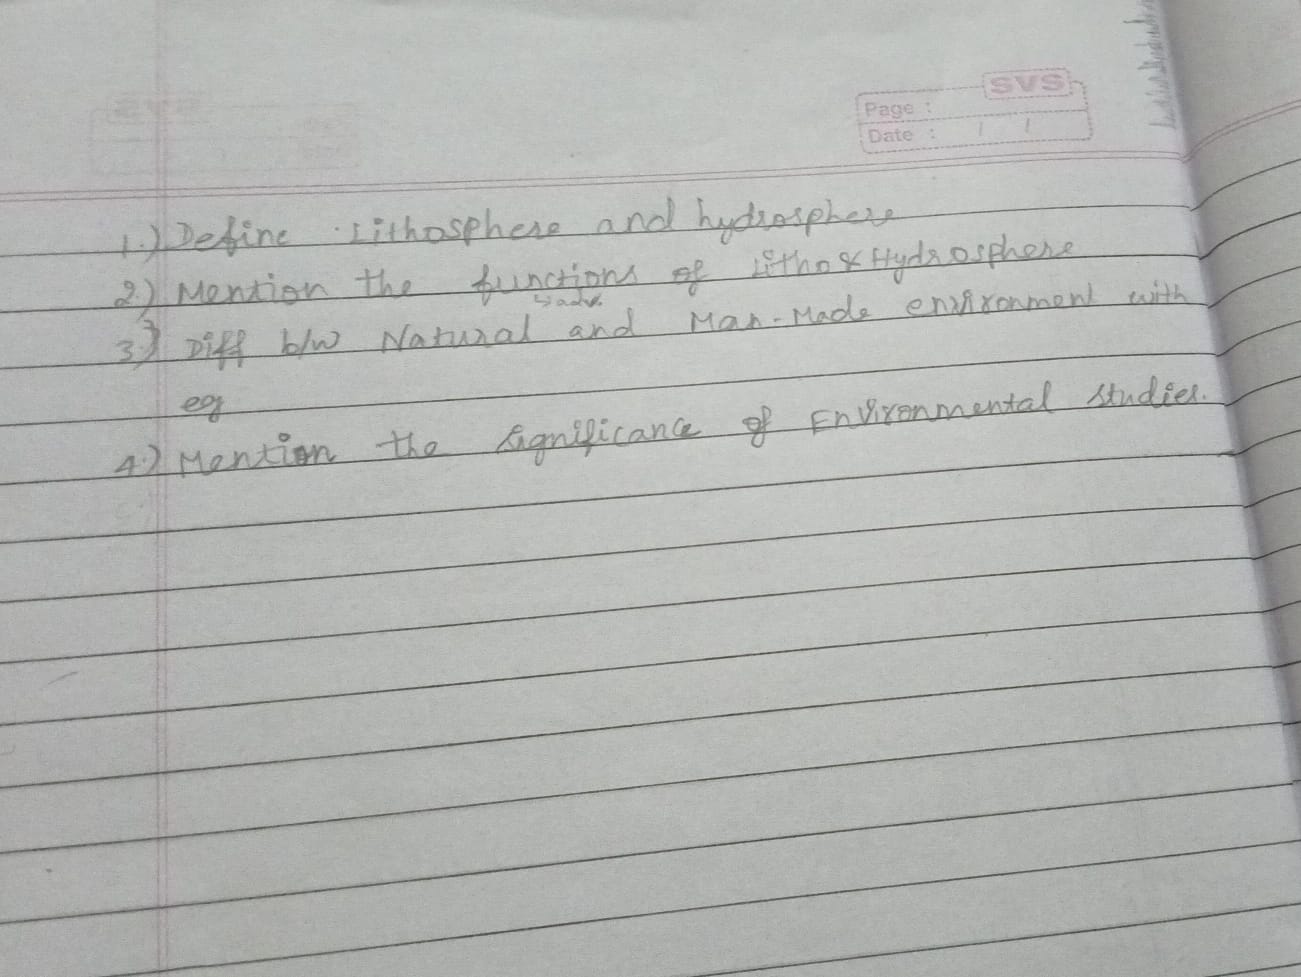 SVS
Page :
Date : / /
1.) Define Lithosphere and hydrosphere
2.) Mention the functions of Litho & Hydrosphere
↳ adv.
3.) Diff b/w Natural and Man-Made environment with
eg
4.) Mention the significance of Environmental studies.